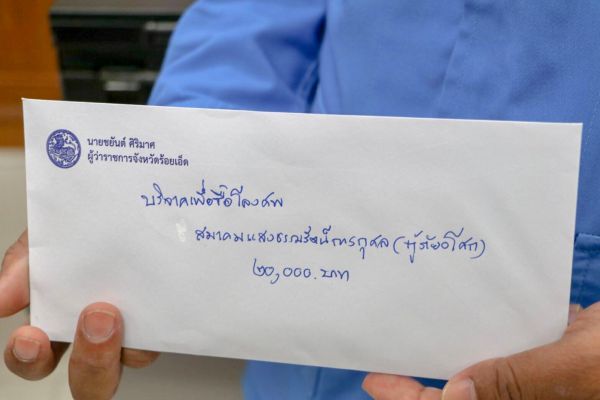 นายชยันต์ ศิริมาศ
ผู้ว่าราชการจังหวัดร้อยเอ็ด
บริจาคเพื่อซื้อโลงศพ
สมาคมแสงธรรมรัศมีการกุศล (กู้ภัยอโศก)
๒๐,๐๐๐.บาท